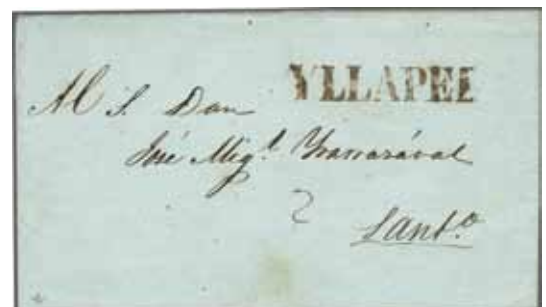 YLLAPEL
Al S. Don
José Migl. Yrarrazaval
2
Santo.